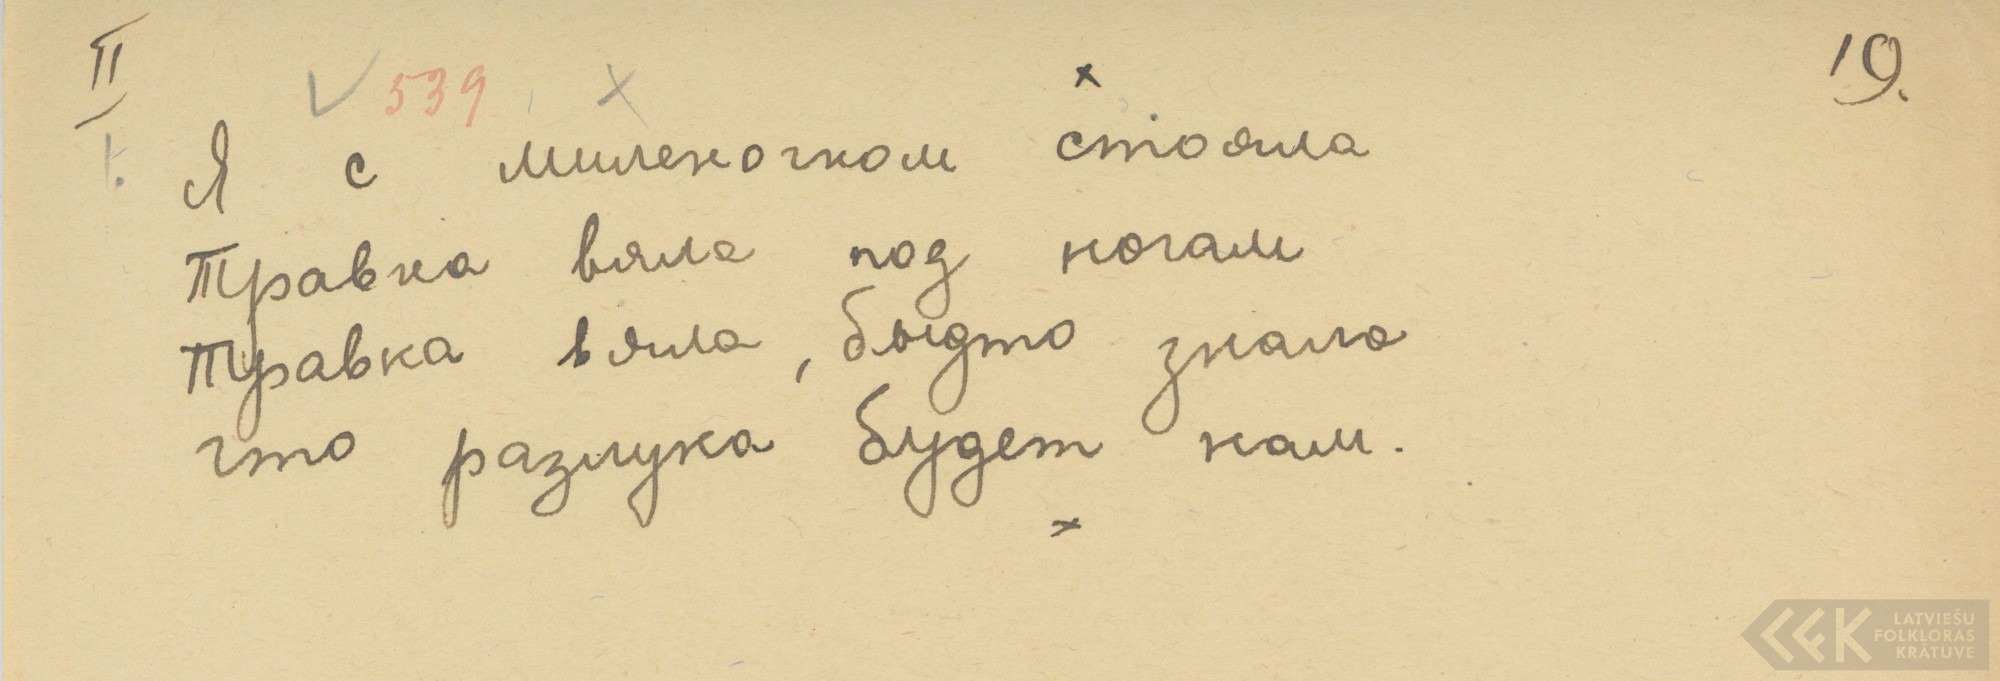 II
V 539 x
x
19.
1.
Я с миленочком стояла
Травка вяла под ногам
Травка вяла, быдто знала
что разлука будет нам.
x
LATVIEŠU
FOLKLORAS
KRĀTUVE